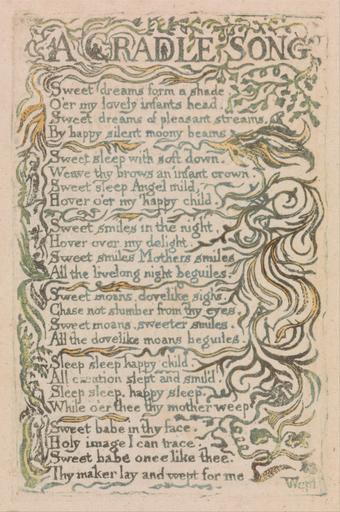 A CRADLE SONG
Sweet dreams form a shade.
O'er my lovely infants head.
Sweet dreams of pleasant streams.
By happy silent moony beams
Sweet sleep with soft down.
Weave thy brows an infant crown.
Sweet sleep Angel mild,
Hover o'er my happy child.
Sweet smiles in the night.
Hover over my delight.
Sweet smiles Mothers smiles
All the livelong night beguiles.
Sweet moans, dovelike sighs,
Chase not slumber from thy eyes.
Sweet moans, sweeter smiles.
All the dovelike moans beguiles.
Sleep sleep happy child.
All creation slept and smil'd.
Sleep sleep, happy sleep,
While o'er thee thy mother weep
Sweet babe in thy face.
Holy image I can trace.
Sweet babe once like thee.
Thy maker lay and wept for me
Wept